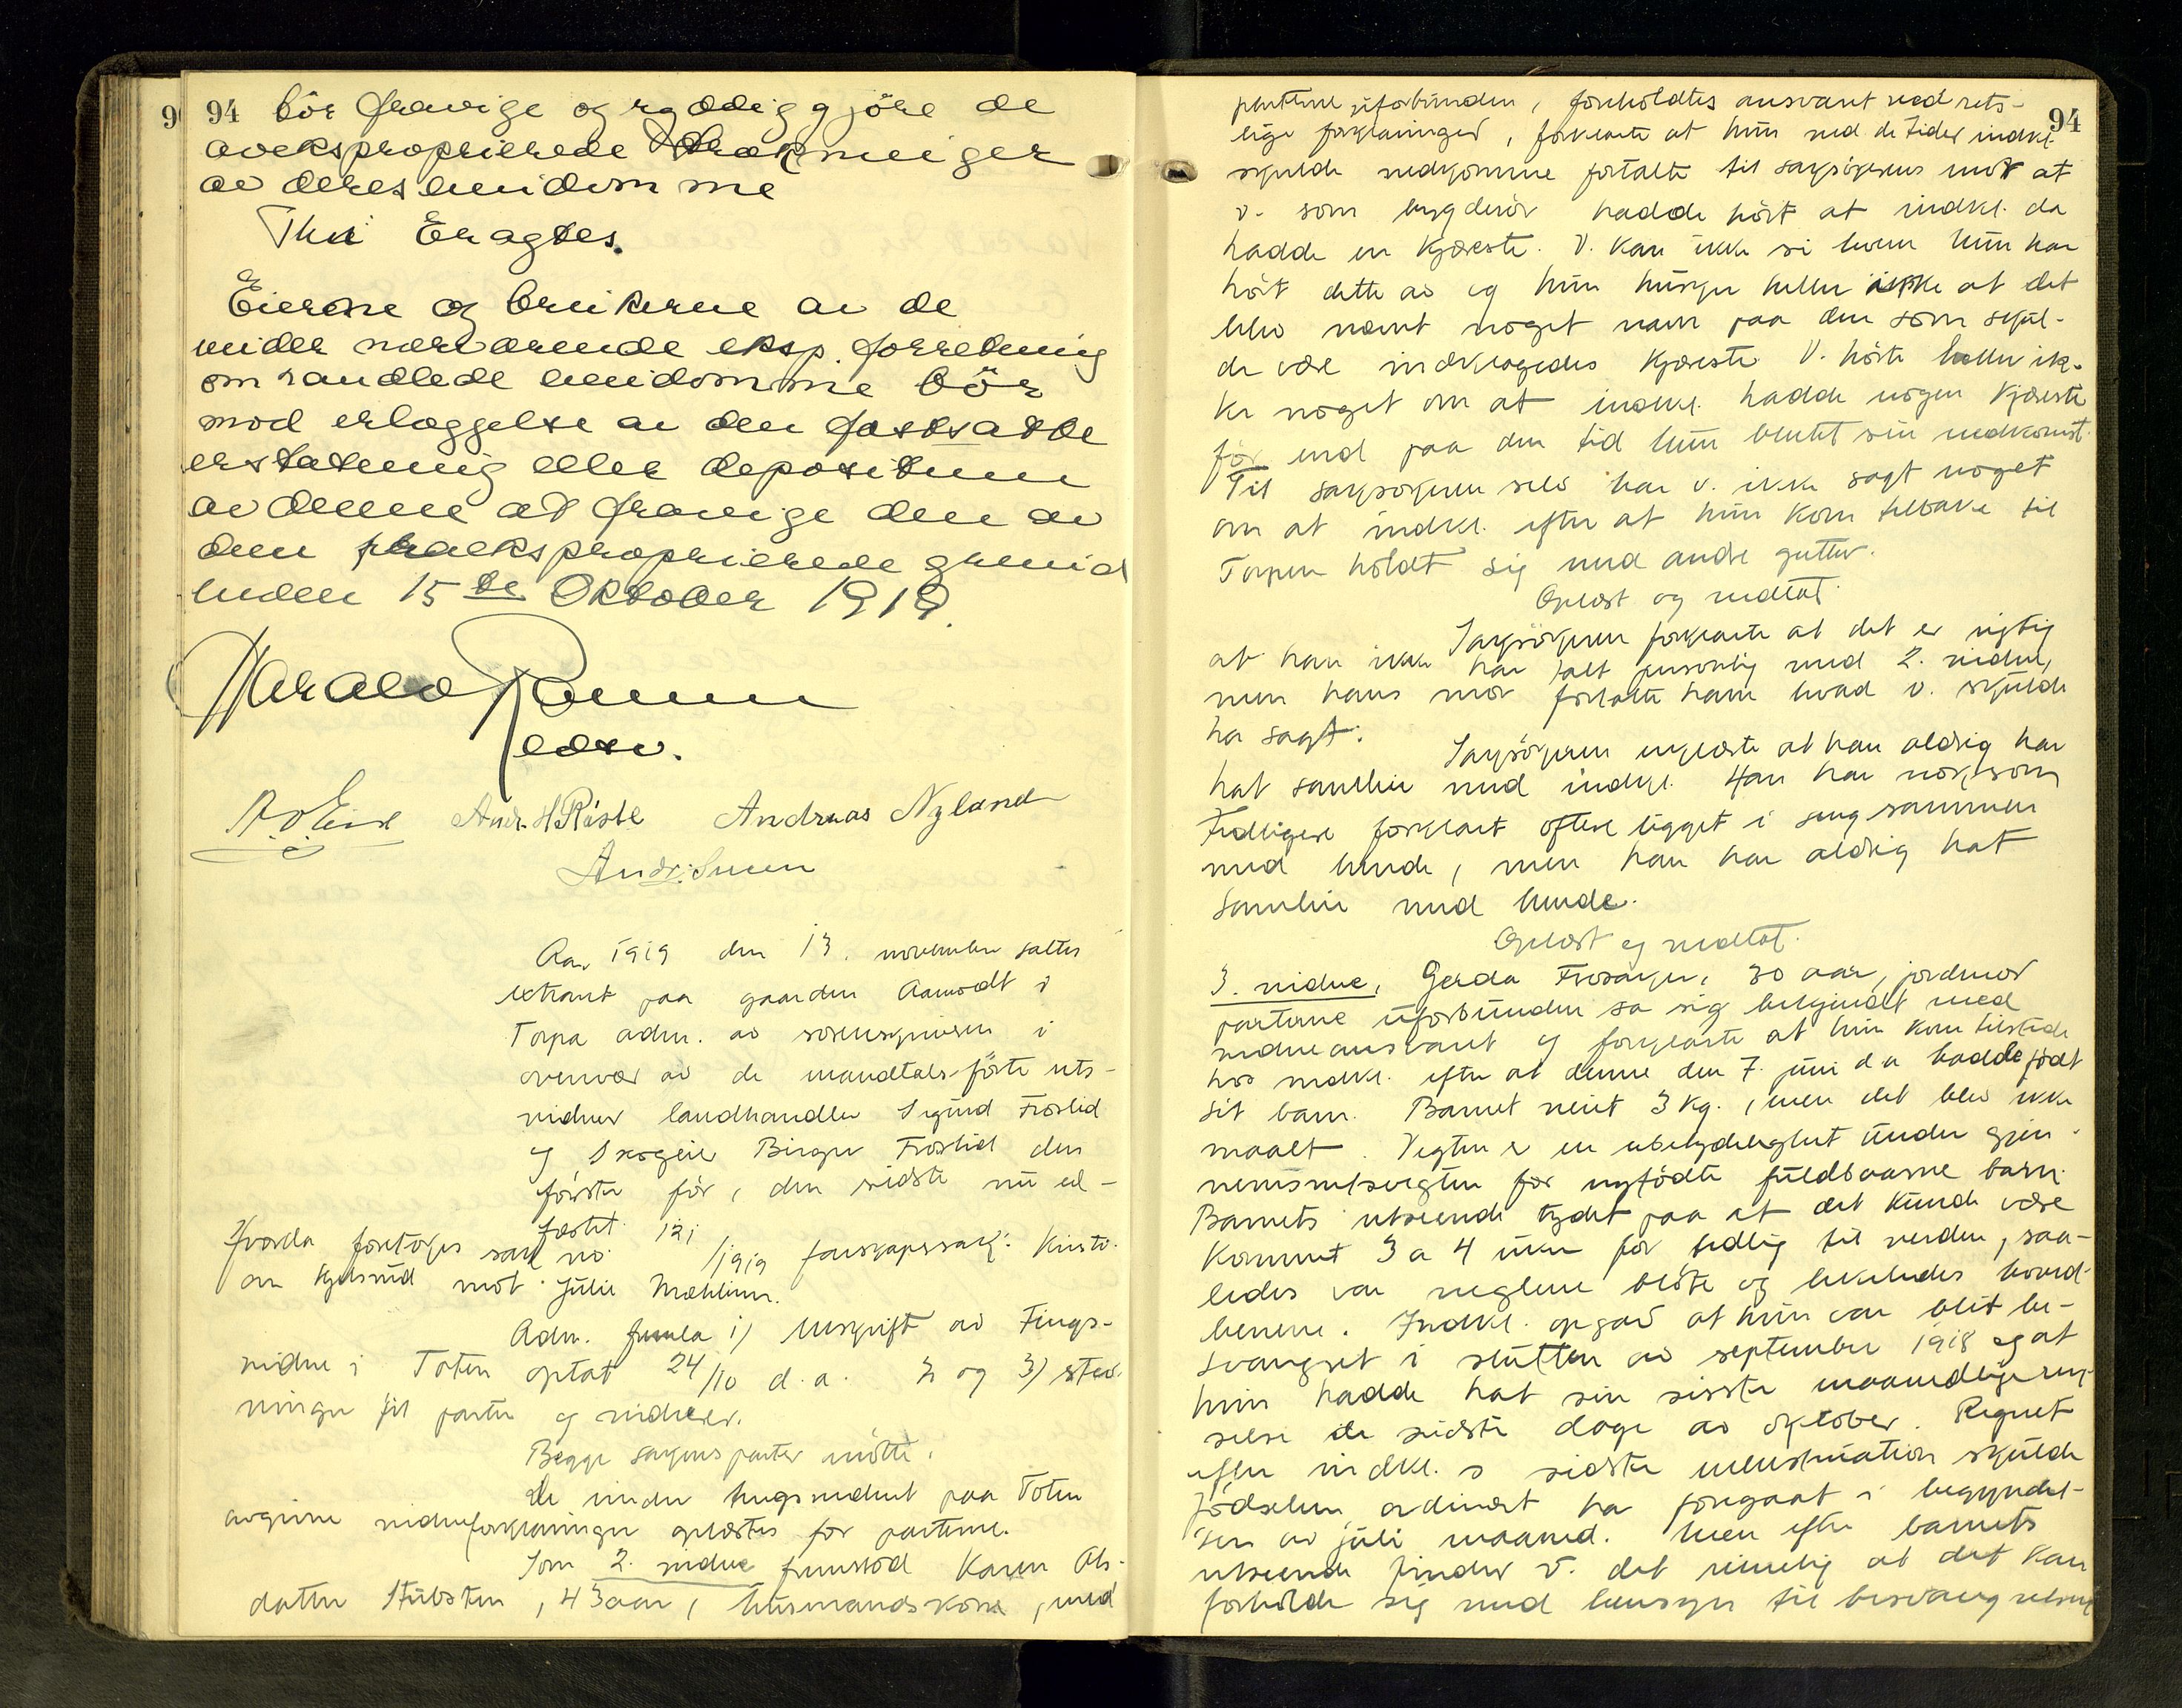 94 bör fravige og ryddiggjöre de
avekspropricerede strækninger
av deres eiendomme
Thi Eragtes.
Eierne og brukerne av de
under nærværende eksp. forretning
omhandlede eiendomme bör
mod erlæggelse av den fastsatte
erstatning eller depositum
av denne at fravige den av
dem fraekspropricerede grund
inden 15de Oktober 1919.
Harald
Andr. H Röste Andreas Nyland
Andr.
Aar 1919 den 13. november sattes
extraret paa gaarden Aamodt i
Torpa adm. av sorenskriveren i
overvær av de mandtals-förte rets-
vidner landhandler Sigurd Froslid
og Skogeier Birger Froslid den
förste för, den sidste nu ed-
fæstet.
Hvorda foretoges sak no. 121/1919 farskapssak: Kristi-
an Kjelsrud mot Julie Mæhlum.
Adm. fremla 1) Utskrift av Tings-
vidne i Toten optat 24/10 d.a. 2 og 3) stev-
ninger til parter og vidner.
Begge sakens parter mötte.
De under tingsvidnet paa Toten
avgivne vidneforklaringer oplæstes for parterne.
Som 2. vidne fremstod Karen Ols-
datter Stubsten, 43 aar, husmandskone, med
94
parterne uforbunden, foreholdtes ansvaret ved rets-
lige forklaringer, forklarte at hun ved de tider indkl.
skulde nedkomme fortalte til saksökerens mor at
v. som bygderör hadde hört at indkl. da
hadde en kjæreste. V. kan ikke si hvem hun har
hört dette av og hun husker heller ikke at det
blev nævnt noget navn paa den som skul-
de være indklagedes kjæreste. V. hörte heller ik-
ke noget om at indkl. hadde nogen kjæreste
för end paa den tid hun ventet sin nedkomst.
Til saksökeren selv har v. ikke sagt noget
om at indkl. efter at hun kom tilbake til
Torpen holdt sig med andre gutter.
Oplæst og vedtat.
Saksökeren forklarte at det er rigtig
at han ikke har talt personlig med 2. vidne,
men hans mor fortalte ham hvad v. skulde
ha sagt.
Saksökeren erklærte at han aldrig har
hat samleie med indkl. Han har nok som
tidligere forklart oftere ligget i seng sammen
med hende, men han har aldrig hat
samleie med hende.
Oplæst og vedtat.
3. vidne, Gerda Frosaker, 30 aar, jordmor
parterne uforbunden sa sig bekjendt med
vidneansvaret og forklarte at hun kom tilstede
hos indkl. efter at denne den 7. juni d a hadde födt
sit barn. Barnet veiet 3 kg., men det blev ikke
maalt. Vegten er en ubetydelighet under gjen-
nemsnitsvegten for nyfödte fuldbaarne barn.
Barnets utseende tydet paa at det kunde være
kommet 3 a 4 uker for tidlig til verden, saa-
ledes var neglene blöte og likeledes hoved-
benene. Indkl. opgav at hun var blit be-
svangret i slutten av september 1918 og at
hun hadde hat sin sisste maanedlige ren-
selse de sidste dage av oktober. Regnet
efter indkl.s sidste menstruation skulde
födselen ordinært ha foregaat i begyndel-
sen av juli maaned. Men efter barnets
utseende finder v. det rimelig at det kan
forholde sig med hensyn til besvangrelsens